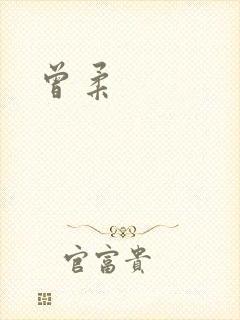 曾柔
官富貴